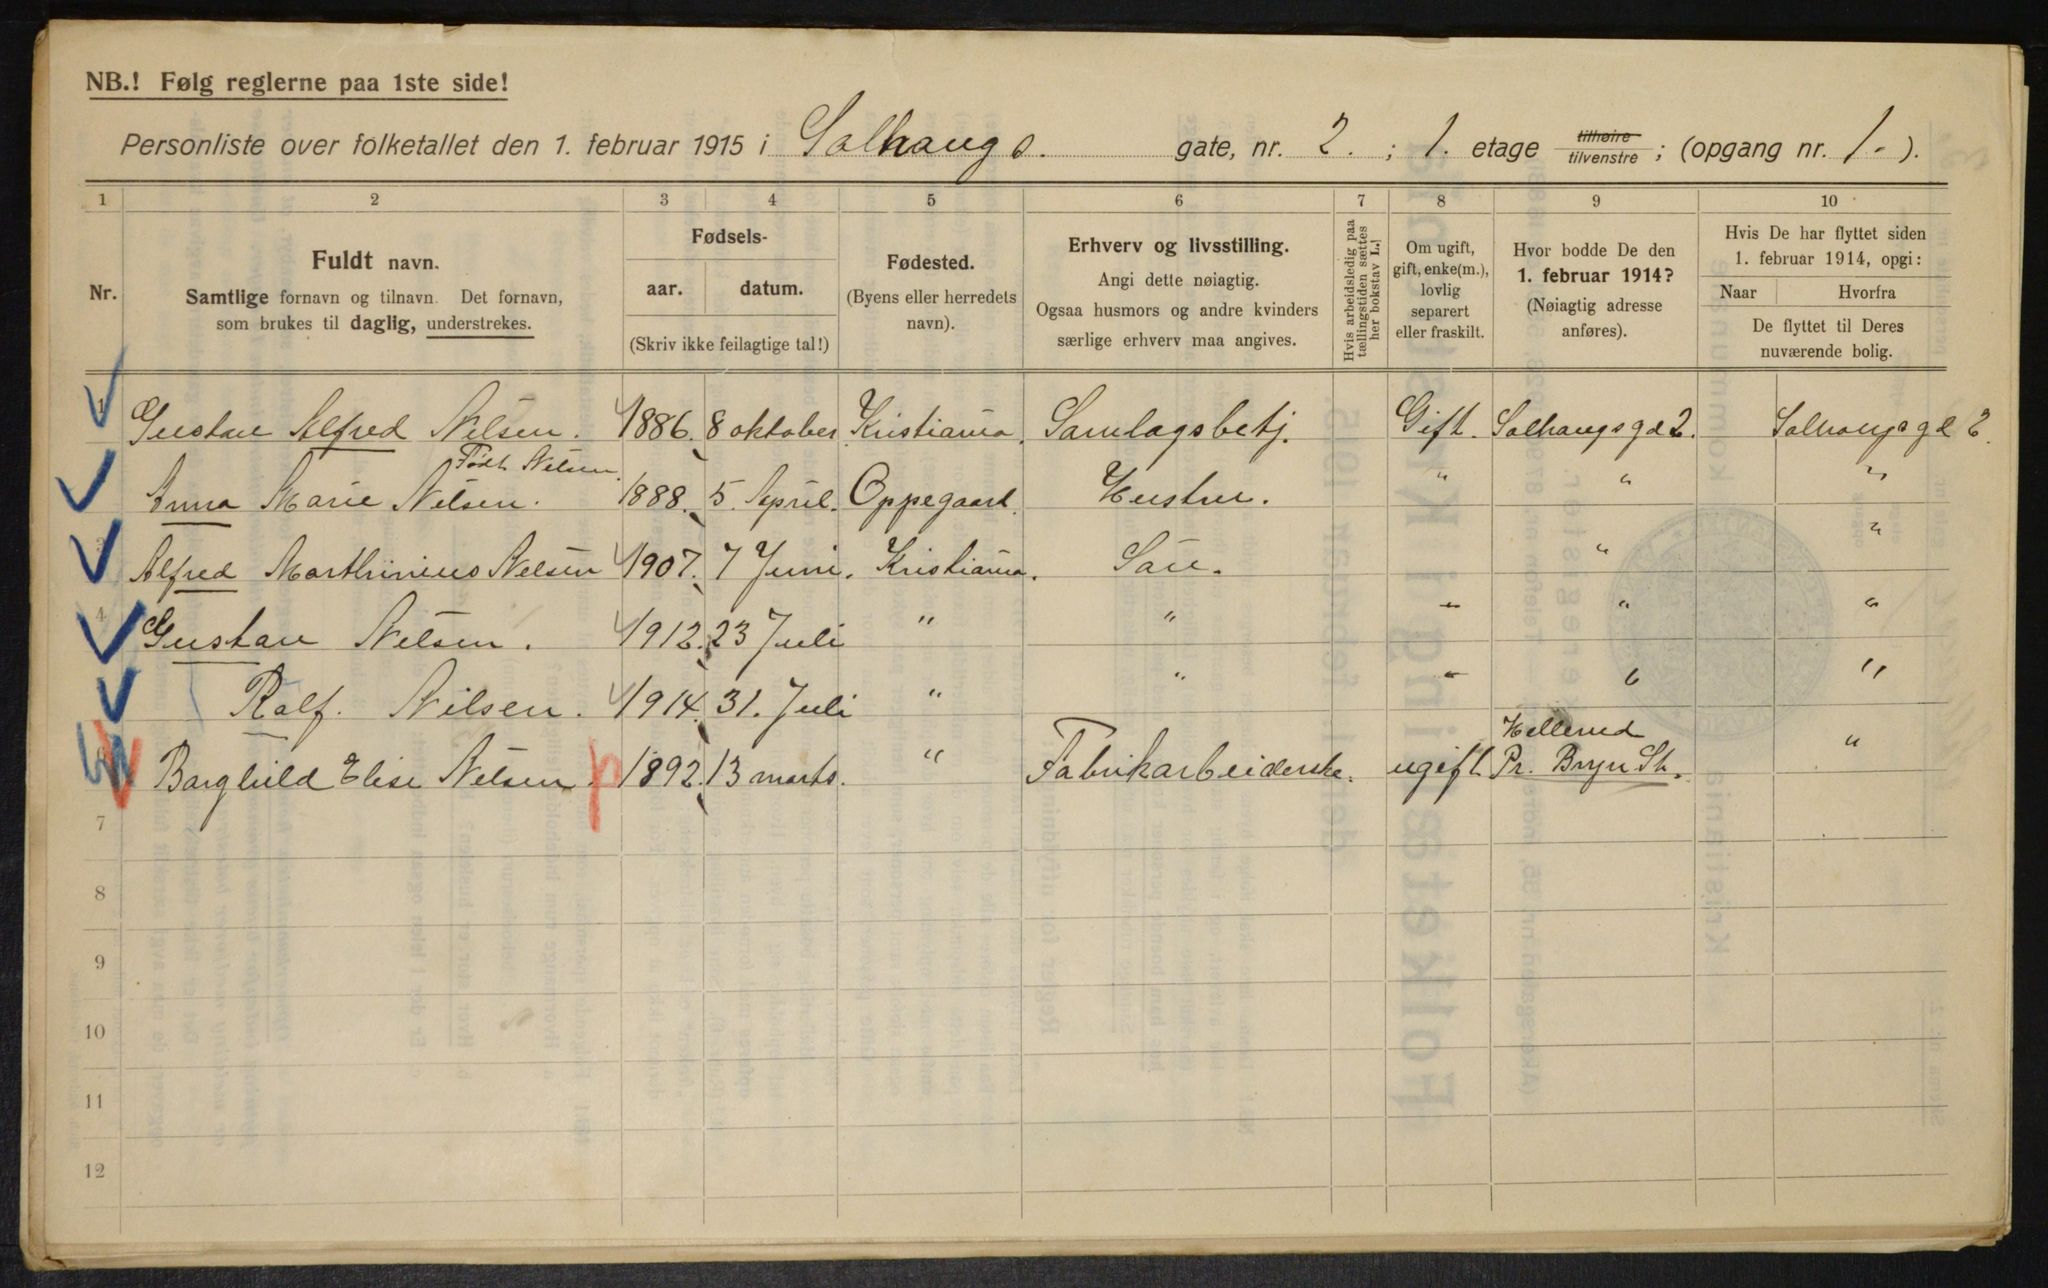 NB.! Følg reglerne paa 1ste side!
Personliste over folketallet den 1. februar 1915 i Solhaugs. gate, nr. 2. ; 1. etage tilhøire tilvenstre ; (opgang nr. 1- ).
1 2 3 4 5 6 7 8 9 10
Nr.
Fuldt navn.
Samtlige fornavn og tilnavn. Det fornavn,
som brukes til daglig, understrekes.
Fødsels-
aar. datum.
(Skriv ikke feilagtige tal!)
Fødested.
(Byens eller herredets
navn).
Erhverv og livsstilling.
Angi dette nøiagtig.
Ogsaa husmors og andre kvinders
særlige erhverv maa angives.
Hvis arbeidsledig paa
tællingstiden sættes
her bokstav L.!
Om ugift,
gift, enke(m.),
lovlig
separert
eller fraskilt.
Hvor bodde De den
1. februar 1914?
(Nøiagtig adresse
anføres).
Hvis De har flyttet siden
1. februar 1914, opgi:
Naar Hvorfra
De flyttet til Deres
nuværende bolig.
1 Gustav Alfred Nilsen. 1886. 8 oktober Kristiania. Samlagsbetj. Gift. Solhaugsgd 2. Solhaugsgd 2.
Født Nilsen
Anna Marie Nilsen. 1888. 5. April. Oppegaard. Hustru. " " "
3 Alfred Marthinius Nilsen 1907. 7 Juni. Kristiania. Søn. " "
4 Gustav Nilsen. 1912. 23 Juli " " - " "
Rolf. Nilsen. 1914. 31. Juli " " - " "
Hellerud
6 Borghild Elise Nilsen. 1892. 13 marts. " Fabrikarbeiderske. ugift. Pr. Bryn St. "
7
8
9
10
11
12